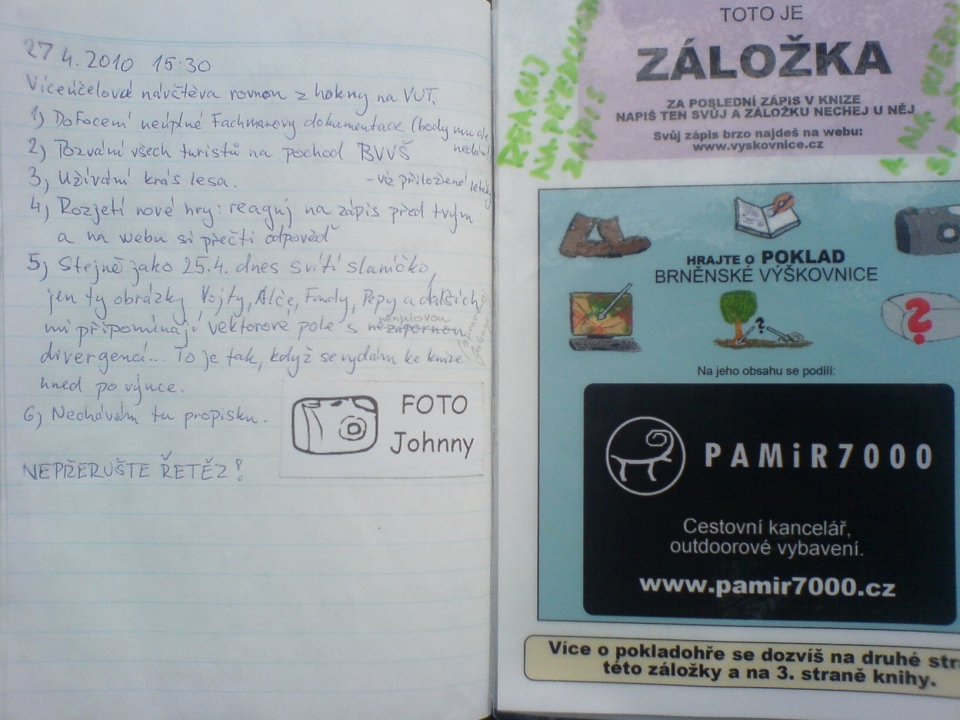 27.4.2010 15:30
Víceúčelová návštěva rovnou z hokny na VUT.
1) Dofocení neúplné Fachmanovy dokumentace (body mu ale
nedám)
2) Pozvání všech turistů na pochod BVVŠ
- viz přiložené letáky
3) Užívání krás lesa.
4) Rozjetí nové hry: reaguj na zápis před tvým
a na webu si přečti odpověď
5) Stejně jako 25.4. dnes svítí slaníčko,
jen ty obrázky Vojty, Alče, Fandy, Pepy a dalších
mi připomínají vektorové pole s nezápornou
nenulovou
divergencí... To je tak, když se vydám ke knize
hned po výuce.
6) Nechávám tu propisku.
FOTO
Johnny
NEPŘERUŠTE ŘETĚZ!
TOTO JE
ZÁLOŽKA
ZA POSLEDNÍ ZÁPIS V KNIZE
NAPIŠ TEN SVŮJ A ZÁLOŽKU NECHEJ U NĚJ
Svůj zápis brzo najdeš na webu:
www.vyskovnice.cz
REAGUJ
NA
ZÁPIS
A NA WEBU
SI
HRAJTE O POKLAD
BRNĚNSKÉ VÝŠKOVNICE
?
?
Na jeho obsahu se podílí:
PAMiR7000
Cestovní kancelář,
outdoorové vybavení.
www.pamir7000.cz
Více o pokladohře se dozvíš na druhé str
této záložky a na 3. straně knihy.